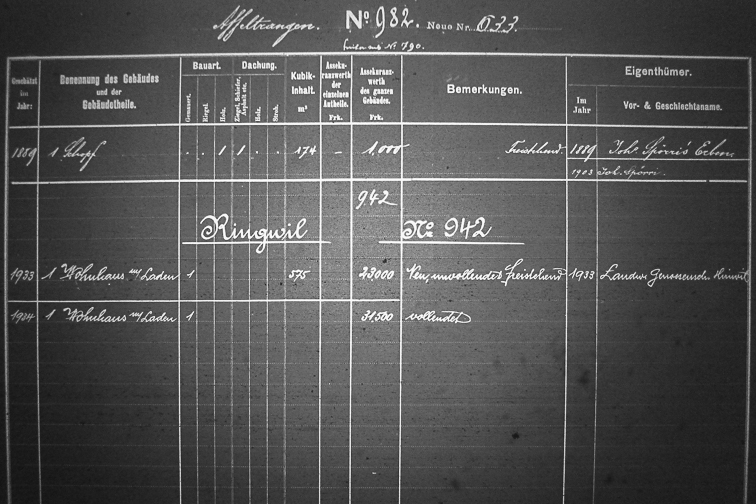 Affeltrangen. No 982. Neue Nr. 633.
früher auf No 790.
Geschätzt im Jahr:
Benennung des Gebäudes und der Gebäudetheile.
Bauart.
Gemauert.
Riegel.
Holz.
Dachung.
Ziegel, Schiefer, Asphalt etc.
Holz.
Stroh.
Kubik-Inhalt. m³
Assekuranzwerth der einzelnen Antheile. Frk.
Assekuranzwerth des ganzen Gebäudes. Frk.
Bemerkungen.
Eigenthümer.
Im Jahr
Vor- & Geschlechtsname.
1889 1 Schopf . . 1 1 . . 174 – 1,000 Freistehend. 1889 Joh. Spörri's Erben
1903 Joh. Spörri.
942
Ringwil No 942
1933 1 Wohnhaus m/Laden 1 575 23,000 Neu, unvollendet freistehend 1933 Landw. Genossensch. Hinwil
1934 1 Wohnhaus m/Laden 1 31,500 vollendet